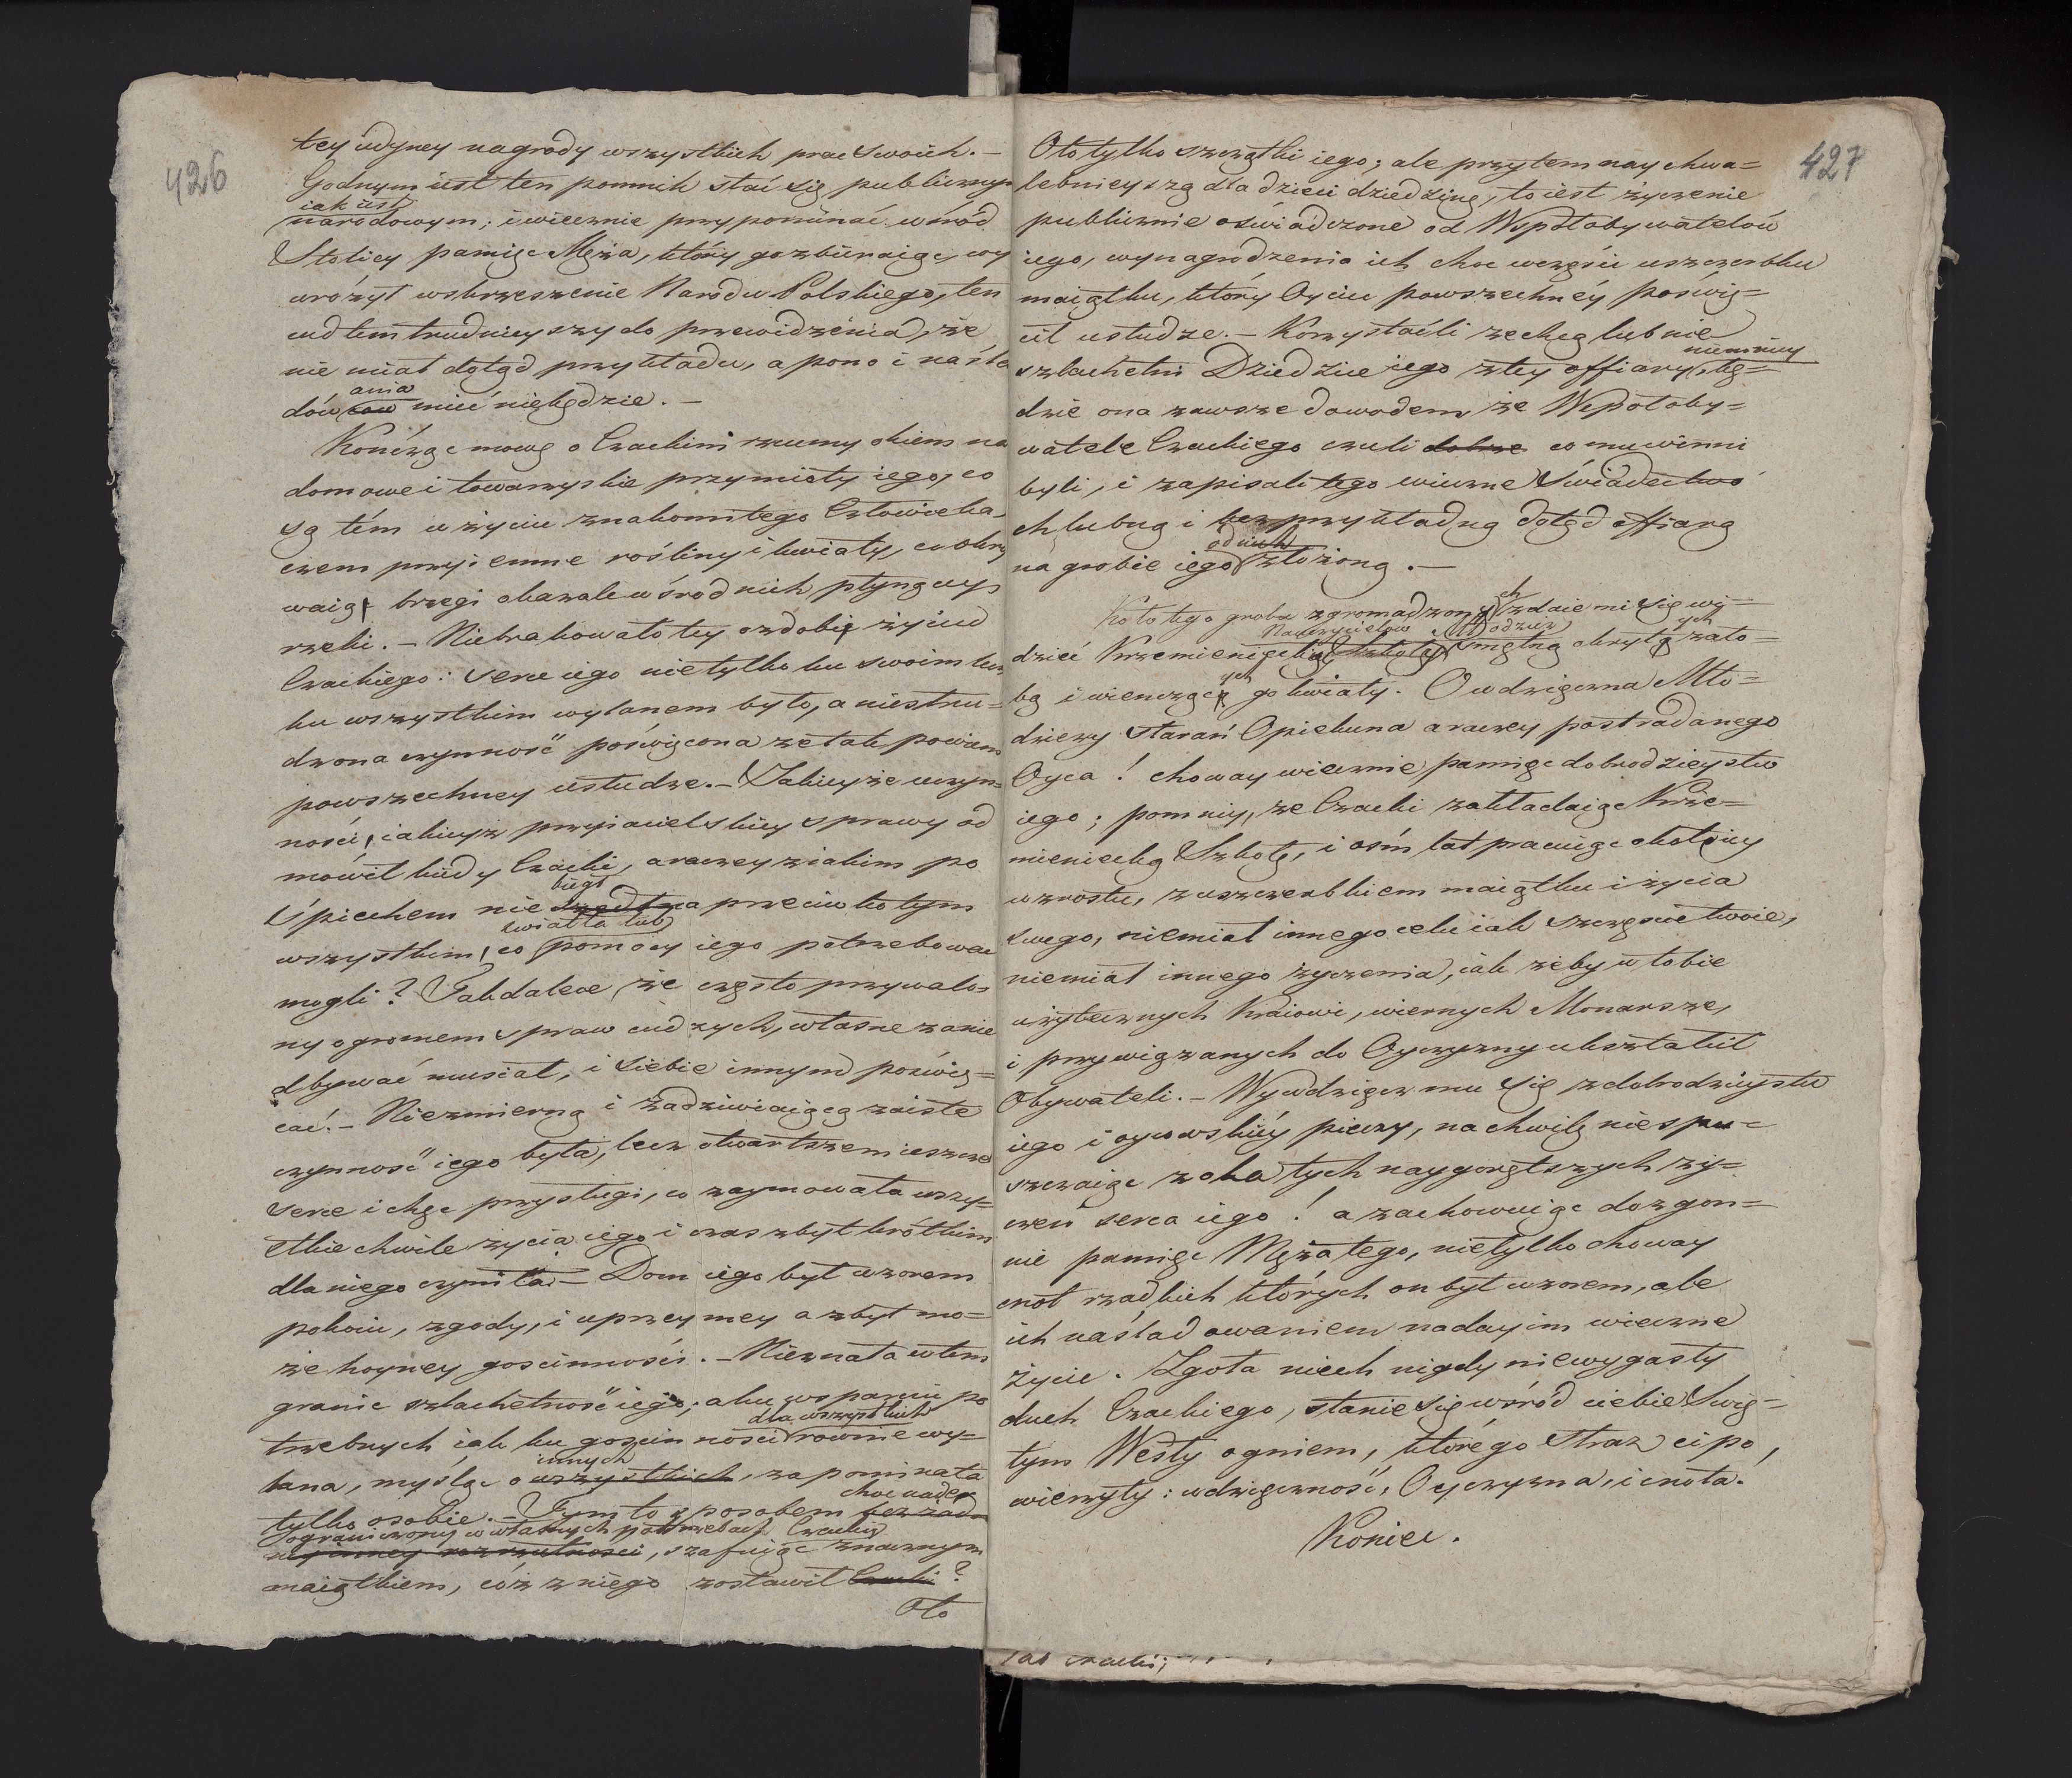 426
tey iedyney nagrody wszystkich prac swoich. —
Godnym iest ten pomnik stać się publicznym
iak iest
narodowym; i wiecznie przypominać wśród
Stolicy pamięc Męża, który go zbieraiąc, wy
wróżył wskrzeszenie Narodu Polskiego, ten
cud tem trudnieyszy do przewidzenia, że
nie miał dotąd przykładu, a pono i naśla
ania
dow ców mieć niebędzie. —
Kończąc mowę o Czackim rzucmy okiem na
domowe i towarzyskie przymioty iego, co
są tém w życiu znakomitego Człowieka,
czem przyiemne rośliny i kwiaty, co okry
waią brzegi okazale wśrod nich płynącey
rzeki. — Niebrakowało tey ozdoby życiu
Czackiego: serce iego nietylko ku swoim lecz
ku wszystkim wylanem było, a niestru=
dzona czynność poświęcona że tak powiem
powszechney usłudze. — Jakieyże uczyn=
ności, iakiey przyiacielskiey sprawy od
mówił kiedy Czacki, a raczey z iakim po
śpiechem nie biegł
na przeciwko tym
światła lub
wszystkim, co pomocy iego potrzebować
mogli? Tak dalece, że często przywalo=
ny ogromem spraw cudzych, własne zanie
dbywać musiał, i siebie innym poświę=
cać. — Niezmierną i zadziwiaiącą zaiste
czynność iego była, lecz otwartszem ieszcze
serce i chęc przysługi, co zaymowała wszy=
stkie chwile życia iego i czas zbyt krótkim
dla niego czyniła. — Dom iego był wzorem
pokoiu, zgody, i uprzeymey a zbyt mo=
że hoyney gościnności. — Nieznała w tem
granic szlachetność iego; a ku wsparciu po
dla wszystkich
trzebnych iak ku gościnności równie wy=
innych
lana, myśląc o wszystkich, zapominała
choc nader
tylko osobie. — Tym to sposobem bez żadn
ograniczony w własnych potrzebach Czacki
rozrzutności, szafuiąc znacznym
maiątkiem, cóż z niego zostawił Czacki?
Oto
427
Oto tylko szczątki iego; ale przytem naychwa=
lebnieyszą dla dzieci dziedzinę, to iest życzenie
publicznie oświadczone od Wspołobywatelów
iego, wynagrodzenia ich choc wczęści uszczerbku
maiątku, który Oyciec powszechnéy poświę=
cił usłudze. — Korzystaćli zechcą lub nie
niemniey
szlachetni Dziedzice iego z tey offiary, bę=
dzie ona zawsze dowodem, że Wspołoby=
watele Czackiego czuli dobrze co mu winni
byli, i zapisali tego wieczne świadectwo
chlubną i bezprzykładną dotąd offiarą
od nich
na grobie iego złożoną. —
ch
Koło tego grobu zgromadzony zdaie mi się wi=
Nauczycielów Młodzież ych
dzieć Krzemieniecką Szkołę smętną okrytą żało=
ych
bą i wienczącą go kwiaty. O wdzięczna Mło=
dzieży starań Opiekuna a raczey postradanego
Oyca! chowaj wiecznie pamięc dobrodzieystw
iego; pomniy, że Czacki zakładaiąc Krze=
mieniecką Szkołę, i ośm lat pracuiąc około iey
wzrostu, z uszczerbkiem maiątku i życia
swego, niemiał innego celu iak szczęście twoie,
niemiał innego życzenia, iak żeby w tobie
użytecznych Kraiowi, wiernych Monarsze,
i przywiązanych do Oyczyzny ukształcił
Obywateli. — Wywdzięcz mu się z dobrodzieystw
iego i oycowskiéy pieczy, na chwilę niespu=
szczaiąc z oka tych naygorętszych ży=
czeń serca iego! a zachowuiąc dozgon=
nie pamięc Męża tego, nietylko choway
cnot rzadkich których on był wzorem, ale
ich naśladowaniem naday im wieczne
życie. Zgoła niech nigdy niewygasły
duch Czackiego, stanie się wśród ciebie świę=
tym Westy ogniem, którego straż ci po,
wierzyły: wdzięczność, Oyczyzna, i cnota.
Koniec.